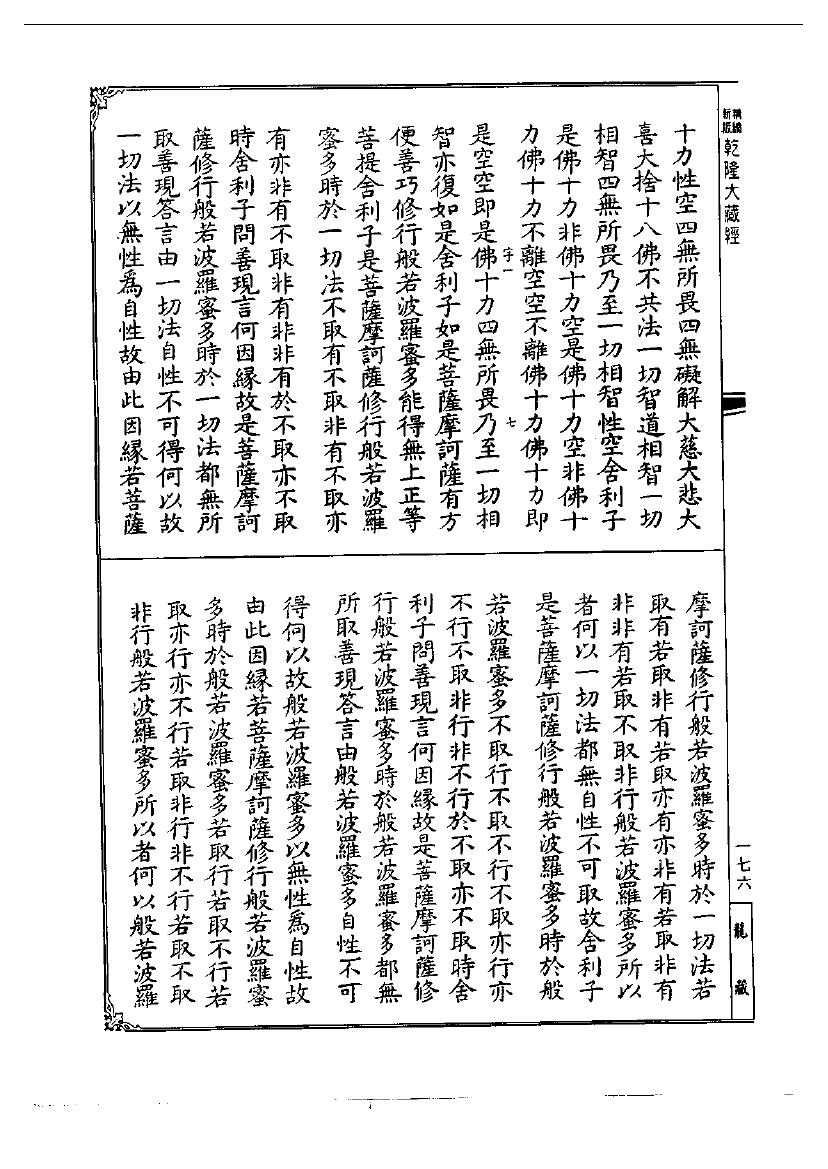 新版
精縮
乾隆大藏經
十力性空四無所畏四無礙解大慈大悲大
喜大捨十八佛不共法一切智道相智一切
相智四無所畏乃至一切相智性空舍利子
是佛十力非佛十力空是佛十力空非佛十
力佛十力不離空空不離佛十力佛十力即
字一
七
是空空即是佛十力四無所畏乃至一切相
智亦復如是舍利子如是菩薩摩訶薩有方
便善巧修行般若波羅蜜多能得無上正等
菩提舍利子是菩薩摩訶薩修行般若波羅
蜜多時於一切法不取有不取非有不取亦
有亦非有不取非有非非有於不取亦不取
時舍利子問善現言何因緣故是菩薩摩訶
薩修行般若波羅蜜多時於一切法都無所
取善現答言由一切法自性不可得何以故
一切法以無性為自性故由此因緣若菩薩
摩訶薩修行般若波羅蜜多時於一切法若
取有若取非有若取亦有亦非有若取非有
非非有若取不取非行般若波羅蜜多所以
者何以一切法都無自性不可取故舍利子
是菩薩摩訶薩修行般若波羅蜜多時於般
若波羅蜜多不取行不取不行不取亦行亦
不行不取非行非不行於不取亦不取時舍
利子問善現言何因緣故是菩薩摩訶薩修
行般若波羅蜜多時於般若波羅蜜多都無
所取善現答言由般若波羅蜜多自性不可
得何以故般若波羅蜜多以無性為自性故
由此因緣若菩薩摩訶薩修行般若波羅蜜
多時於般若波羅蜜多若取行若取不行若
取亦行亦不行若取非行非不行若取不取
非行般若波羅蜜多所以者何以般若波羅
一七六
龍藏